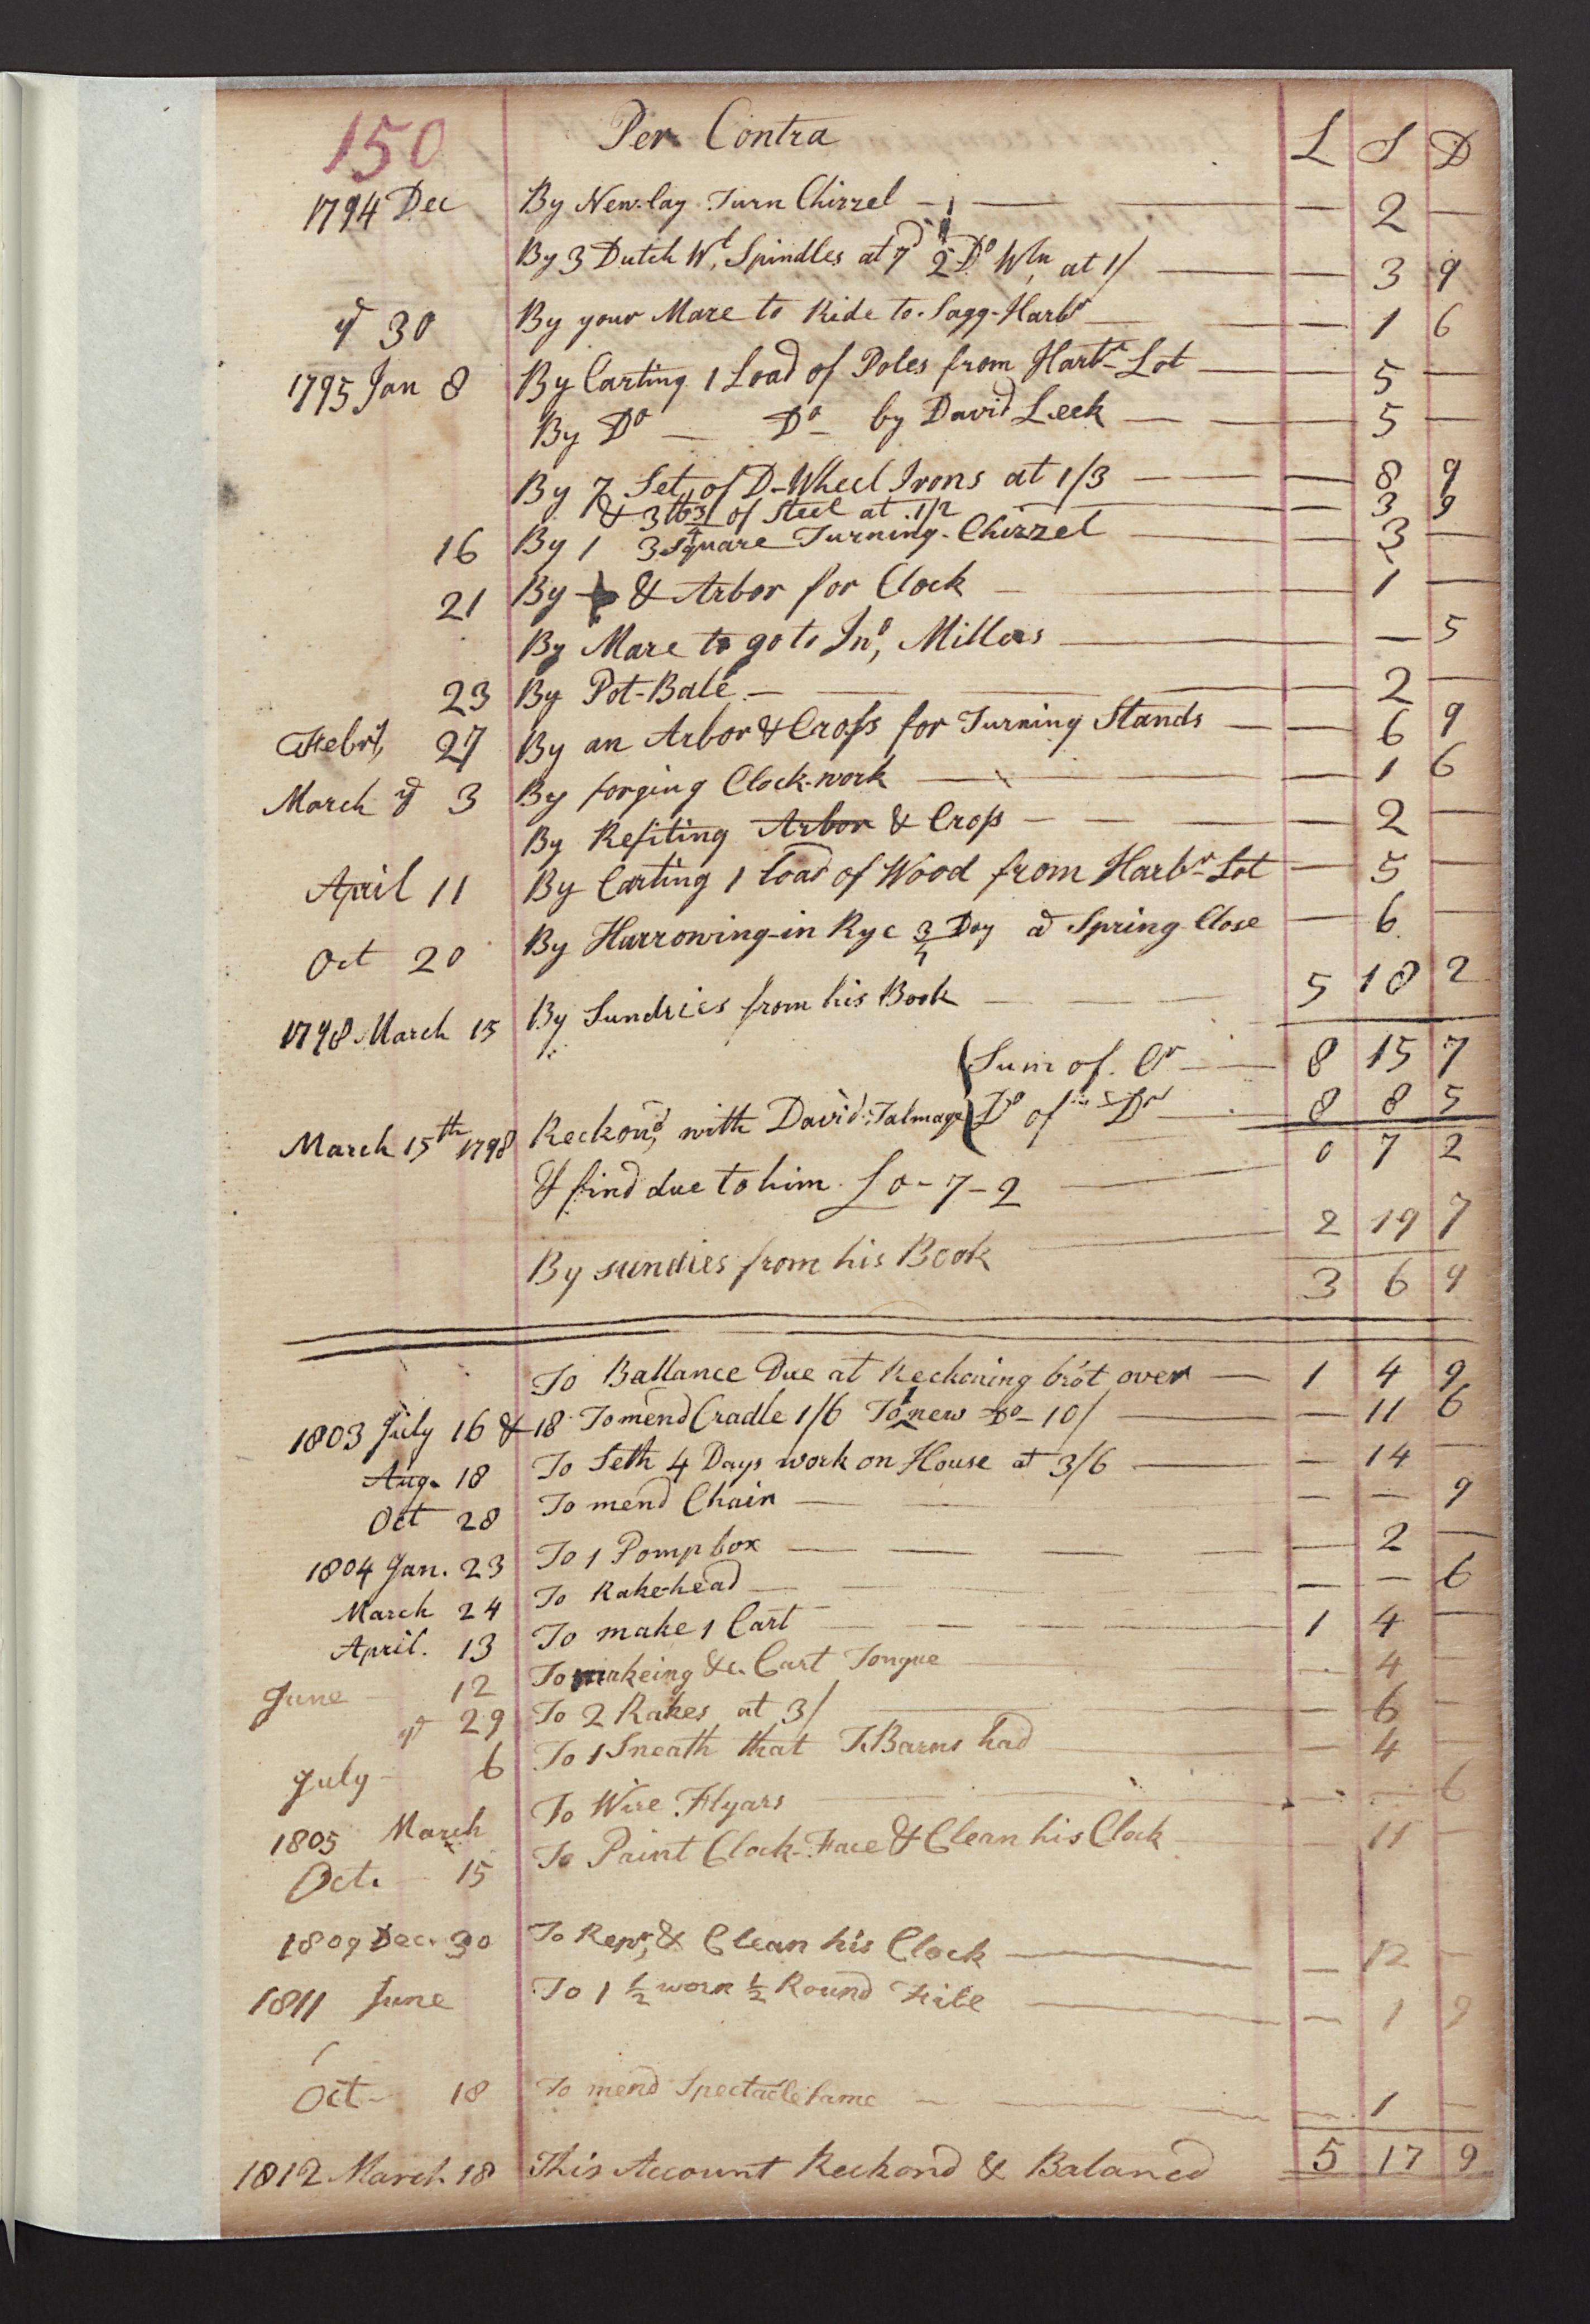 150 Per Contra L S D
1794 Dec By New-lay Turn Chizzel — 2 —
By 3 Dutch Wl, Spindles at 7d 2 Do Wln at 1/ — 3 9
yd 30 By your Mare to Ride to Sagg-Harbr — 1 6
1795 Jan 8 By Carting 1 Load of Poles from Harbr Lot — 5 —
By Do — Do by David Leek — 5 —
By 7 Set, of D-Wheel Irons at 1/3 — 8 9
& 3 lb 3/4 of Steel at 1/2 — 3 9
16 By 1 3 Square Turning-Chizzel — 3 —
21 By & Arbor for Clock — 1 —
By Mare to go to Jno, Millers — 5
23 By Pot-Bale — 2 —
Febry, 27 By an Arbor & Cross for Turning Stands — 6 9
March yd 3 By forging Clock-work — 1 6
By Refiting Arbor & Cross — 2 —
April 11 By Carting 1 load of Wood from Harbr Lot — 5 —
Oct 20 By Harrowing-in Rye 3/4 Day at Spring Close — 6 —
1798 March 15 By Sundries from his Book — 5 18 2
Sum of Cr — 8 15 7
March 15th 1798 Reckond, with David Talmage Do of Dr — 8 8 5
& find due to him £0-7-2 — 0 7 2
By sundies from his Book — 2 19 7
3 6 9
To Ballance Due at Reckoning brot over — 1 4 9
1803 July 16 & 18 To mend Cradle 1/6 To 1 new Do 10/ — 11 6
Aug. 18 To Seth 4 Days work on House at 3/6 — 14 —
Oct 28 To mend Chain — — 9
1804 Jan. 23 To 1 Pomp box — 2 —
March 24 To Rake-head — — 6
April. 13 To make 1 Cart — 1 4 —
June 12 To makeing &c. Cart Tongue — 4 —
yd 29 To 2 Rakes at 3/ — 6 —
July 6 To 1 Sneath that T. Barns had — 4 —
1805 March To Wire Flyars — — 6
Oct. 15 To Paint Clock-Face & Clean his Clock — 11 —
1809 Dec. 30 To Repr, & Clean his Clock — 12 —
1811 June To 1 1/2 worn 1/2 Round File — 1 9
Oct 18 To mend Spectacle frame — 1 —
1812 March 18 This Account Reckond & Balancd 5 17 9